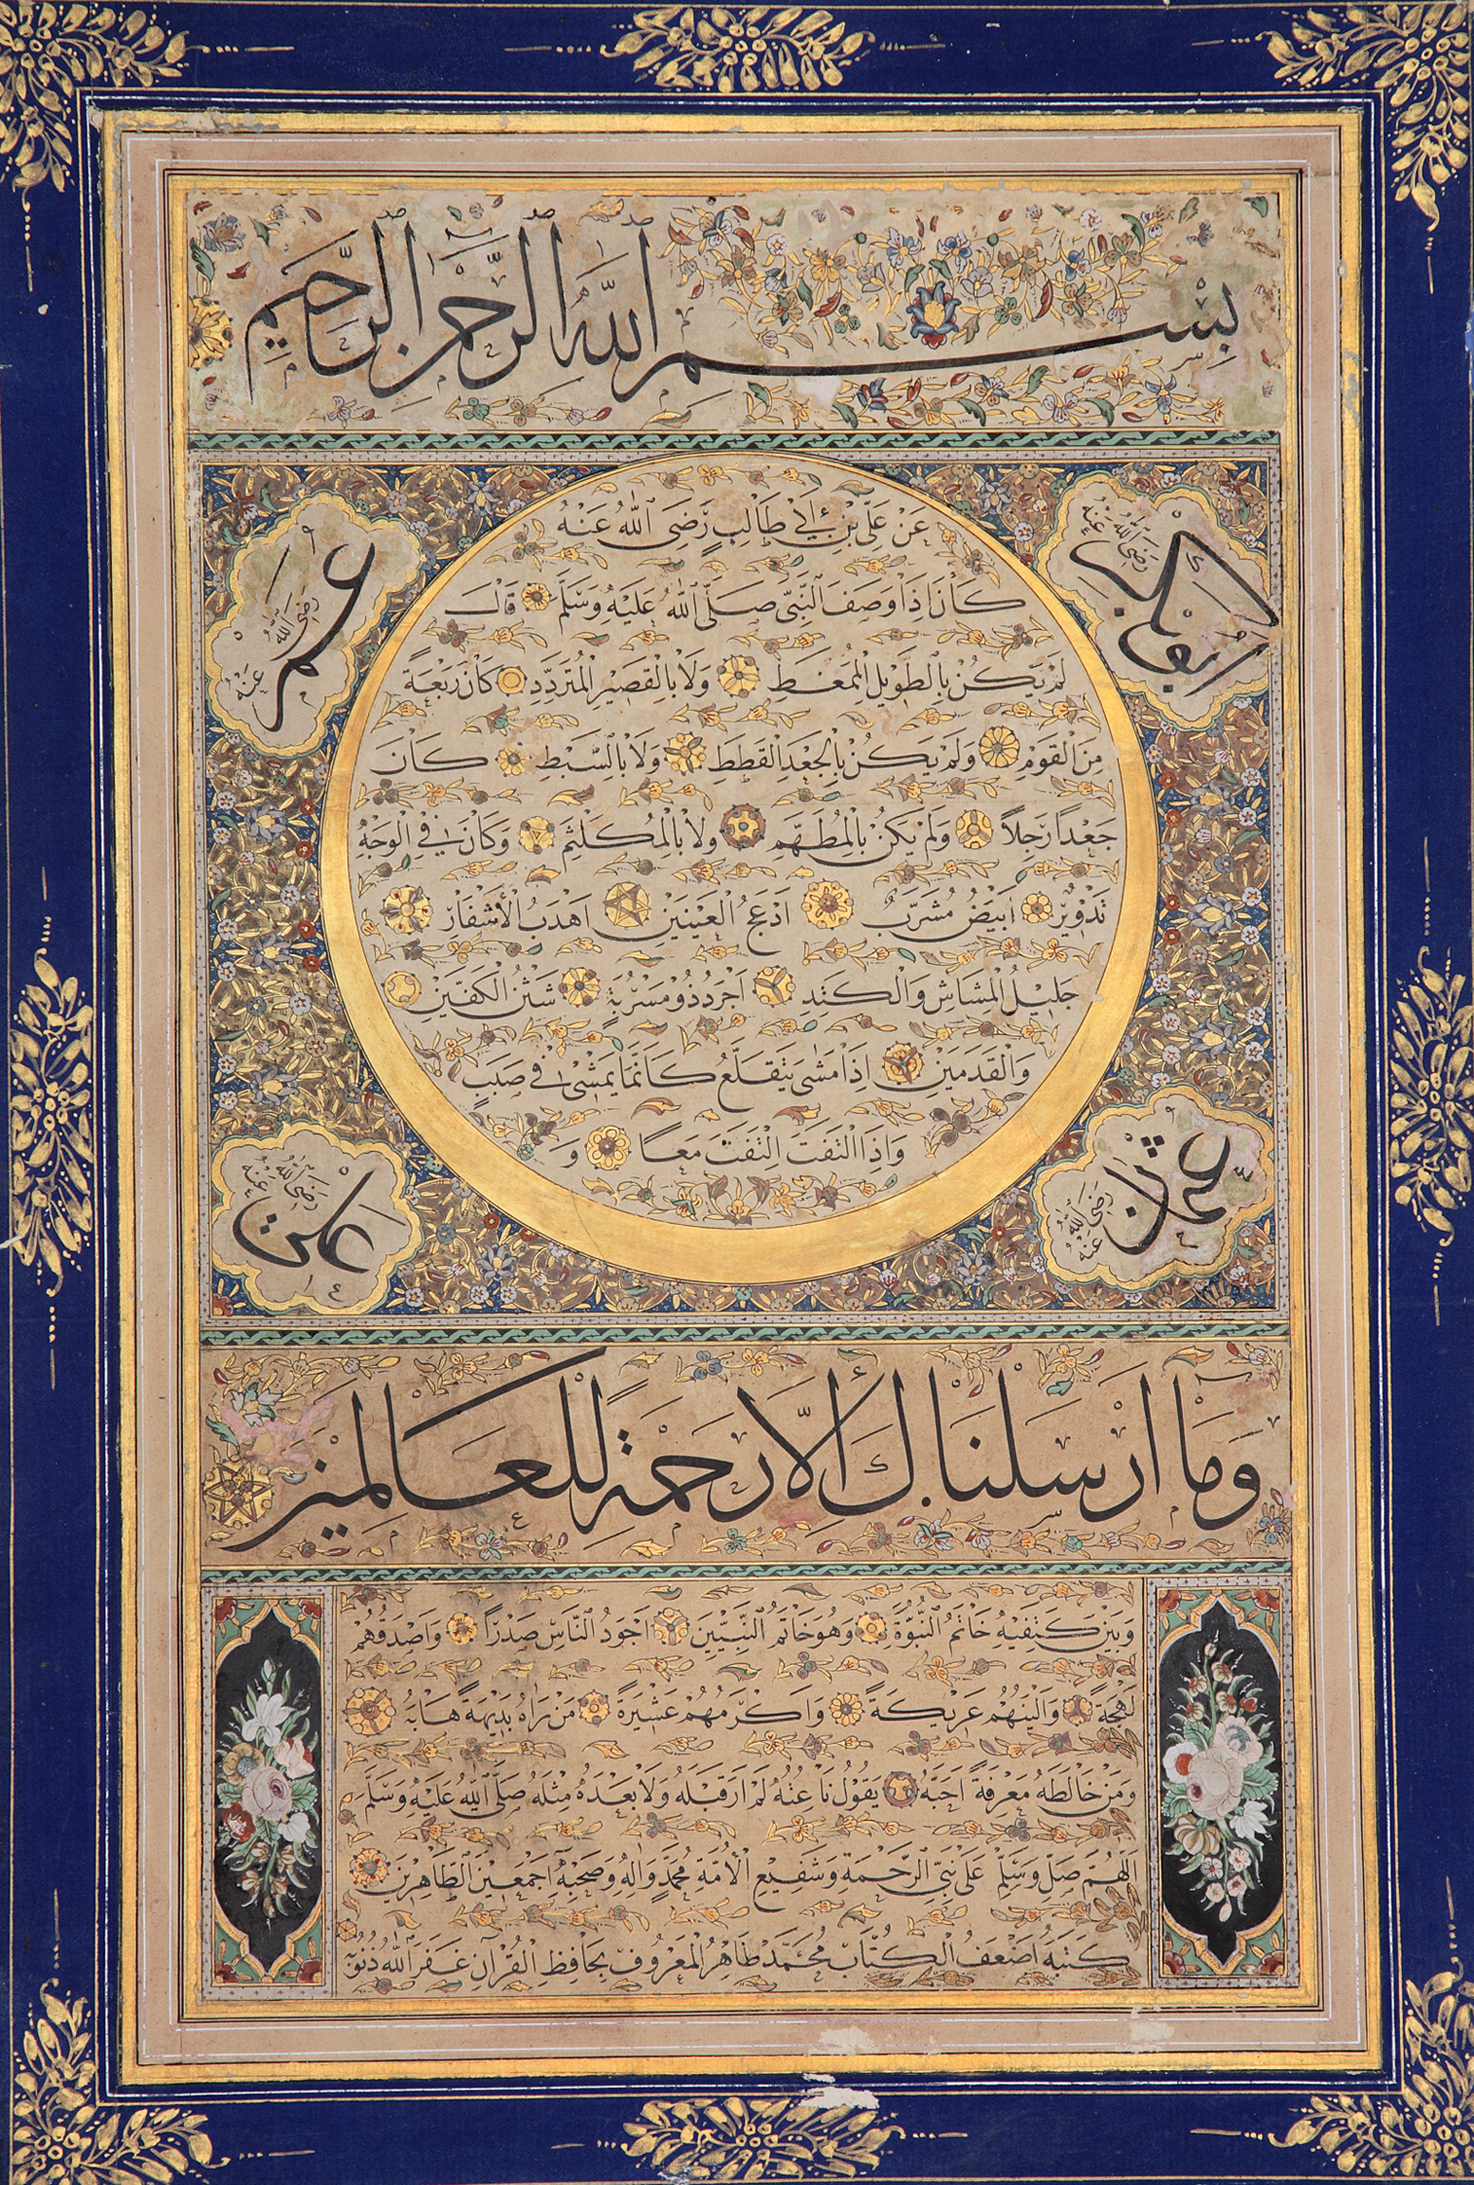 بسم الله الرحمن الرحيم
ابو بكر رضي الله عنه
عمر رضي الله عنه
عَنْ عَلِيِّ بْنِ أَبِي طَالِبٍ رَضِيَ اللهُ عَنْهُ
كَانَ اِذَا وَصَفَ النَّبِيَّ صَلَّى اللهُ عَلَيْهِ وَسَلَّمَ قَالَ
لَمْ يَكُنْ بِالطَّوِيلِ الْمُمَّغَطِ وَلَا بِالْقَصِيرِ الْمُتَرَدِّدِ كَانَ رَبْعَةً
مِنَ الْقَوْمِ وَلَمْ يَكُنْ بِالْجَعْدِ الْقَطَطِ وَلَا بِالسَّبْطِ كَانَ
جَعْدًا رَجِلًا وَلَمْ يَكُنْ بِالْمُطَهَّمِ وَلَا بِالْمُكَلْثَمِ وَكَانَ فِي الْوَجْهِ
تَدْوِيرٌ اَبْيَضُ مُشْرَبٌ اَدْعَجُ الْعَيْنَيْنِ اَهْدَبُ الْاَشْفَارِ
جَلِيلُ الْمُشَاشِ وَالْكَتَدِ اَجْرَدُ ذُو مَسْرُبَةٍ شَثْنُ الْكَفَّيْنِ
وَالْقَدَمَيْنِ اِذَا مَشَى يَتَقَلَّعُ كَاَنَّمَا يَمْشِي فِي صَبَبٍ
وَاِذَا الْتَفَتَ الْتَفَتَ مَعًا وَ
عثمان رضي الله عنه
علي رضي الله عنه
وَمَا اَرْسَلْنَاكَ اِلَّا رَحْمَةً لِلْعَالَمِينَ
وَبَيْنَ كَتِفَيْهِ خَاتَمُ النُّبُوَّةِ وَهُوَ خَاتَمُ النَّبِيِّينَ اَجْوَدُ النَّاسِ صَدْرًا وَاَصْدَقُهُمْ
لَهْجَةً وَاَلْيَنُهُمْ عَرِيكَةً وَاَكْرَمُهُمْ عَشِيرَةً مَنْ رَاٰهُ بَدِيهَةً هَابَهُ
وَمَنْ خَالَطَهُ مَعْرِفَةً اَحَبَّهُ يَقُولُ نَاعِتُهُ لَمْ اَرَ قَبْلَهُ وَلَا بَعْدَهُ مِثْلَهُ صَلَّى اللهُ عَلَيْهِ وَسَلَّمَ
اللَّهُمَّ صَلِّ وَسَلِّمْ عَلَى نَبِيِّ الرَّحْمَةِ وَشَفِيعِ الْاُمَّةِ مُحَمَّدٍ وَاٰلِهِ وَصَحْبِهِ اَجْمَعِينَ الطَّاهِرِينَ
كَتَبَهُ اَضْعَفُ الْكُتَّابِ مُحَمَّدْ طَاهِرْ الْمَعْرُوفُ بِحَافِظِ الْقُرْاٰنِ غَفَرَ اللهُ ذُنُوبَهُ